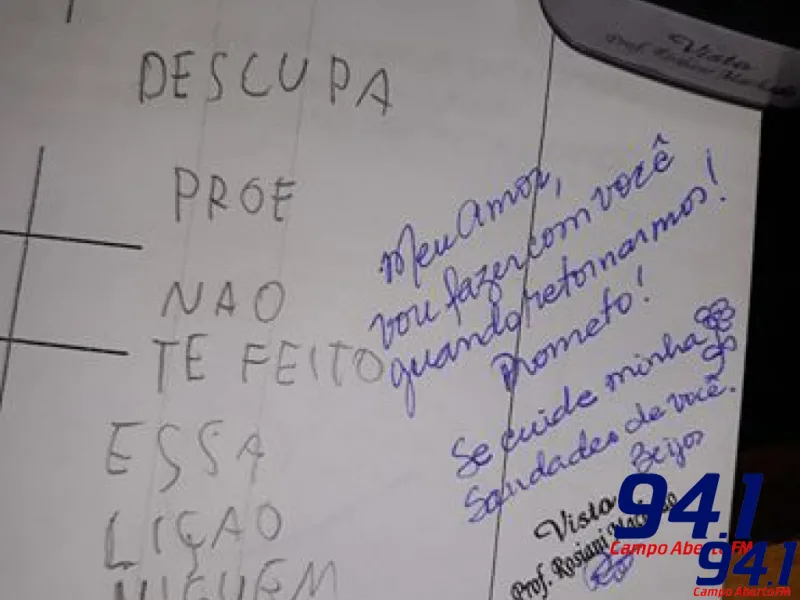 DESCUPA
PROE
NAO
TE FEITO
ESSA
LIÇAO
NIGUEM
Meu Amor,
vou fazer com você
quando retornarmos!
Prometo!
Se cuide minha
Saudades de você.
Beijos
Visto
Prof. Rosiani Machado
Visto
Prof. Rosiani Machado
94.1
Campo Aberto FM
94.1
Campo Aberto FM